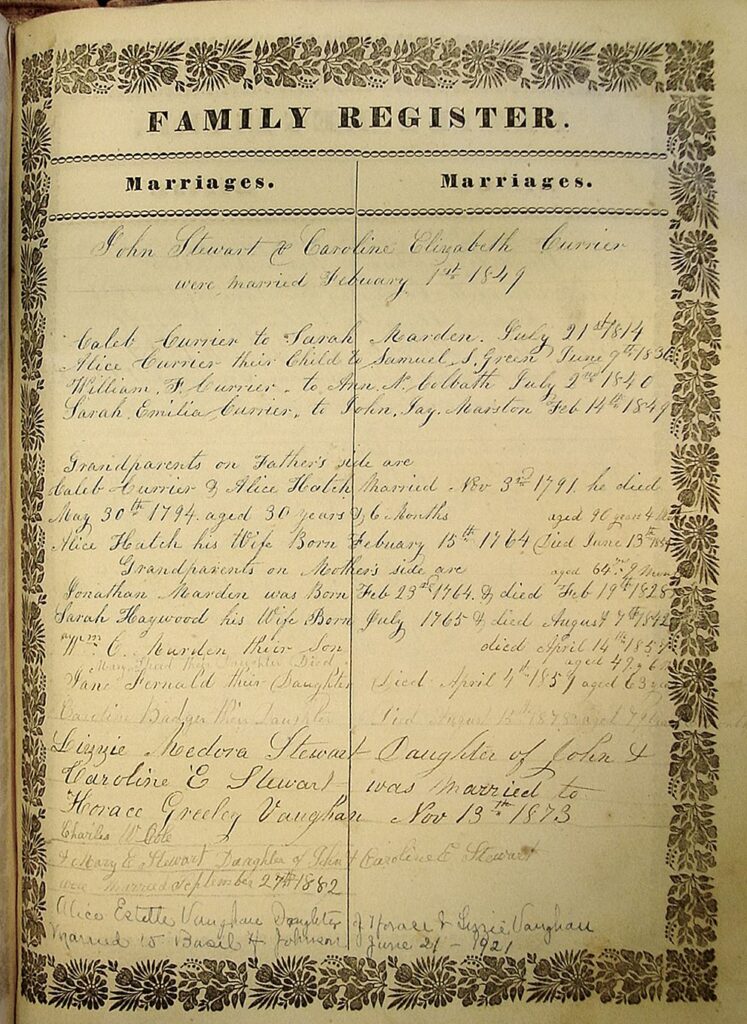 FAMILY REGISTER.
Marriages. Marriages.
John Stewart & Caroline Elizabeth Currier
were married Febuary 1st 1849
Caleb Currier to Sarah Marden. July 21st 1814
Alice Currier their Child to Samuel S. Green June 9th
William. F. Currier. to Ann. N. Colbath July 2nd 1840
Sarah. Emilia Currier. to John. Jay. Marston Feb 14th 1849
Grandparents on Father's side are
Caleb Currier & Alice Hatch Married Nov 3rd 1791. he died
May 30th 1794. aged 30 years & 6 Months
aged 90 years 4
Alice Hatch his Wife Born Febuary 15th 1764 Died June 13th
Grandparents on Mother's side are
aged 64
Jonathan Marden was Born Feb 23rd 1764. & died Feb 19th 1828
Sarah Haywood his Wife Born July 1765 & died August 7th 1842
Wm C. Marden their Son died April 14th 1857
their Daughter Died
aged 49
Jane Fernald their Daughter Died April 4 1859 aged 63
Caroline Badger their Daughter Died August 1878 aged
Lizzie Medora Stewart Daughter of John &
Caroline E Stewart was married to
Horace Greeley Vaughan Nov 13th 1873
Charles W. Cole
& Mary E Stewart Daughter of John & Caroline E Stewart
were Married September 27th 1882
Alice Estelle Vaughan Daughter of Horace & Lizzie Vaughan
Married to Basil H Johnson June 21 - 1921